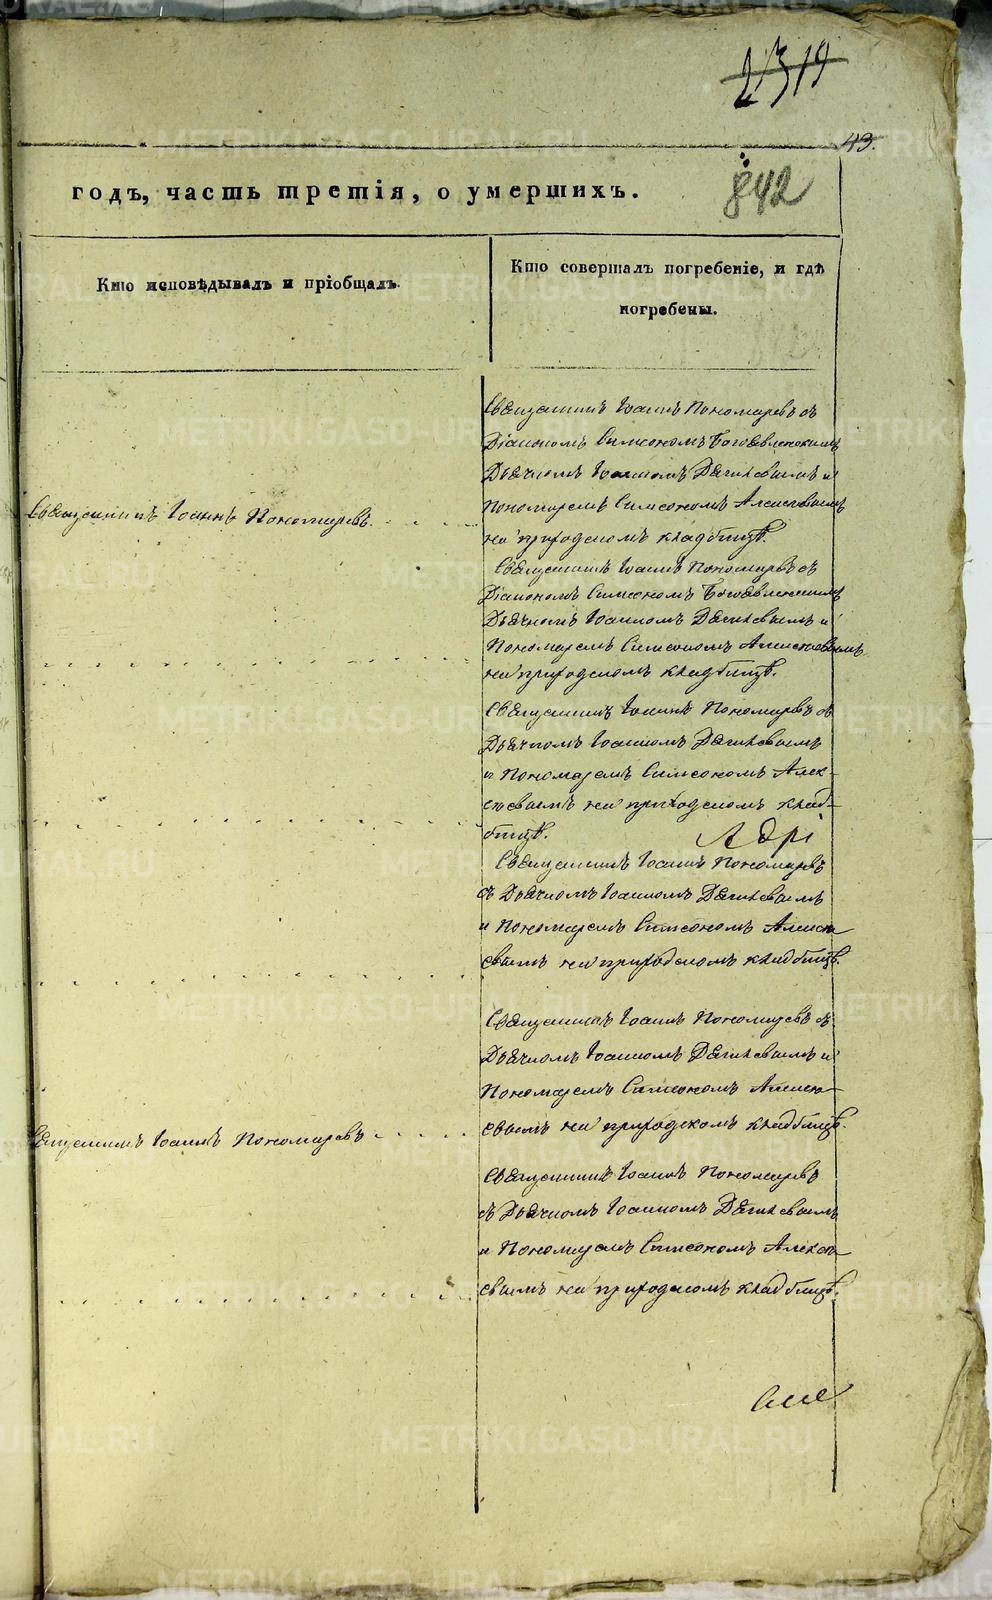 2319
43.
842
годъ, часть третія, о умершихъ.
Кто исповѣдывалъ и пріобщалъ.
Кто совершалъ погребеніе, и гдѣ
погребены.
Священникъ Іоаннъ Пономаревъ съ
Діакономъ Симеономъ Богоявленскимъ
Дьячкомъ Іоанномъ
Пономаремъ Симеономъ Алексѣевымъ
на приходскомъ кладбищѣ.
Священникъ Іоаннъ Пономаревъ.
Священникъ Іоаннъ Пономаревъ съ
Діакономъ Симеономъ Богоявленскимъ
Дьячкомъ Іоанномъ
Пономаремъ Симеономъ Алексѣевымъ
на приходскомъ кладбищѣ.
Священникъ Іоаннъ Пономаревъ съ
Дьячкомъ Іоанномъ
и Пономаремъ Симеономъ Алек-
сѣевымъ на приходскомъ клад-
бищѣ.
Священникъ Іоаннъ Пономаревъ
съ Дьячкомъ Іоанномъ
и Пономаремъ Симеономъ Алексѣ
евымъ на приходскомъ кладбищѣ.
Священникъ Іоаннъ Пономаревъ съ
Дьячкомъ Іоанномъ
Пономаремъ Симеономъ Алексѣ
евымъ на приходскомъ кладбищѣ.
Священникъ Іоаннъ Пономаревъ
Священникъ Іоаннъ Пономаревъ
съ Дьячкомъ Іоанномъ
и Пономаремъ Симеономъ Алексѣ
евымъ на приходскомъ кладбищѣ.
METRIKI.GASO-URAL.RU